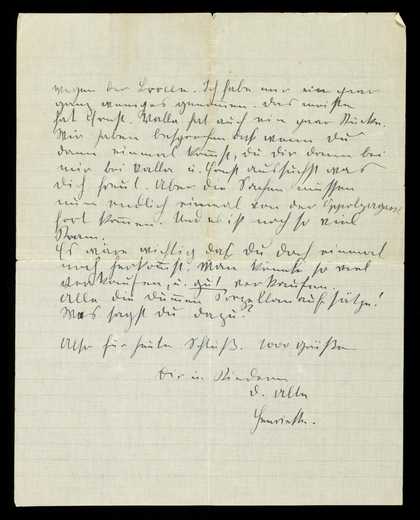 wegen der Ich habe nur ein paar
ganz weniges genommen. Das meiste
hat Ernst. Valla hat auch ein paar Stücke.
Wir haben besprochen daß wenn du
dann einmal kommst, du dir dann bei
mir bei Valla u. Ernst aussuchst was
dich freut. Aber die Sachen müssen
nun endlich einmal von der
fort kommen. Und es ist noch so viel
Kram.
Es wäre wichtig daß du doch einmal
noch herkommst. Man könnte so viel
verkaufen, u. gut verkaufen.
Alle die dummen Porzellanaufsätze!
Was sagst du dazu?
Also für heute Schluß. 1000 Grüße
dir u. Kindern
d. alte
Henriette.